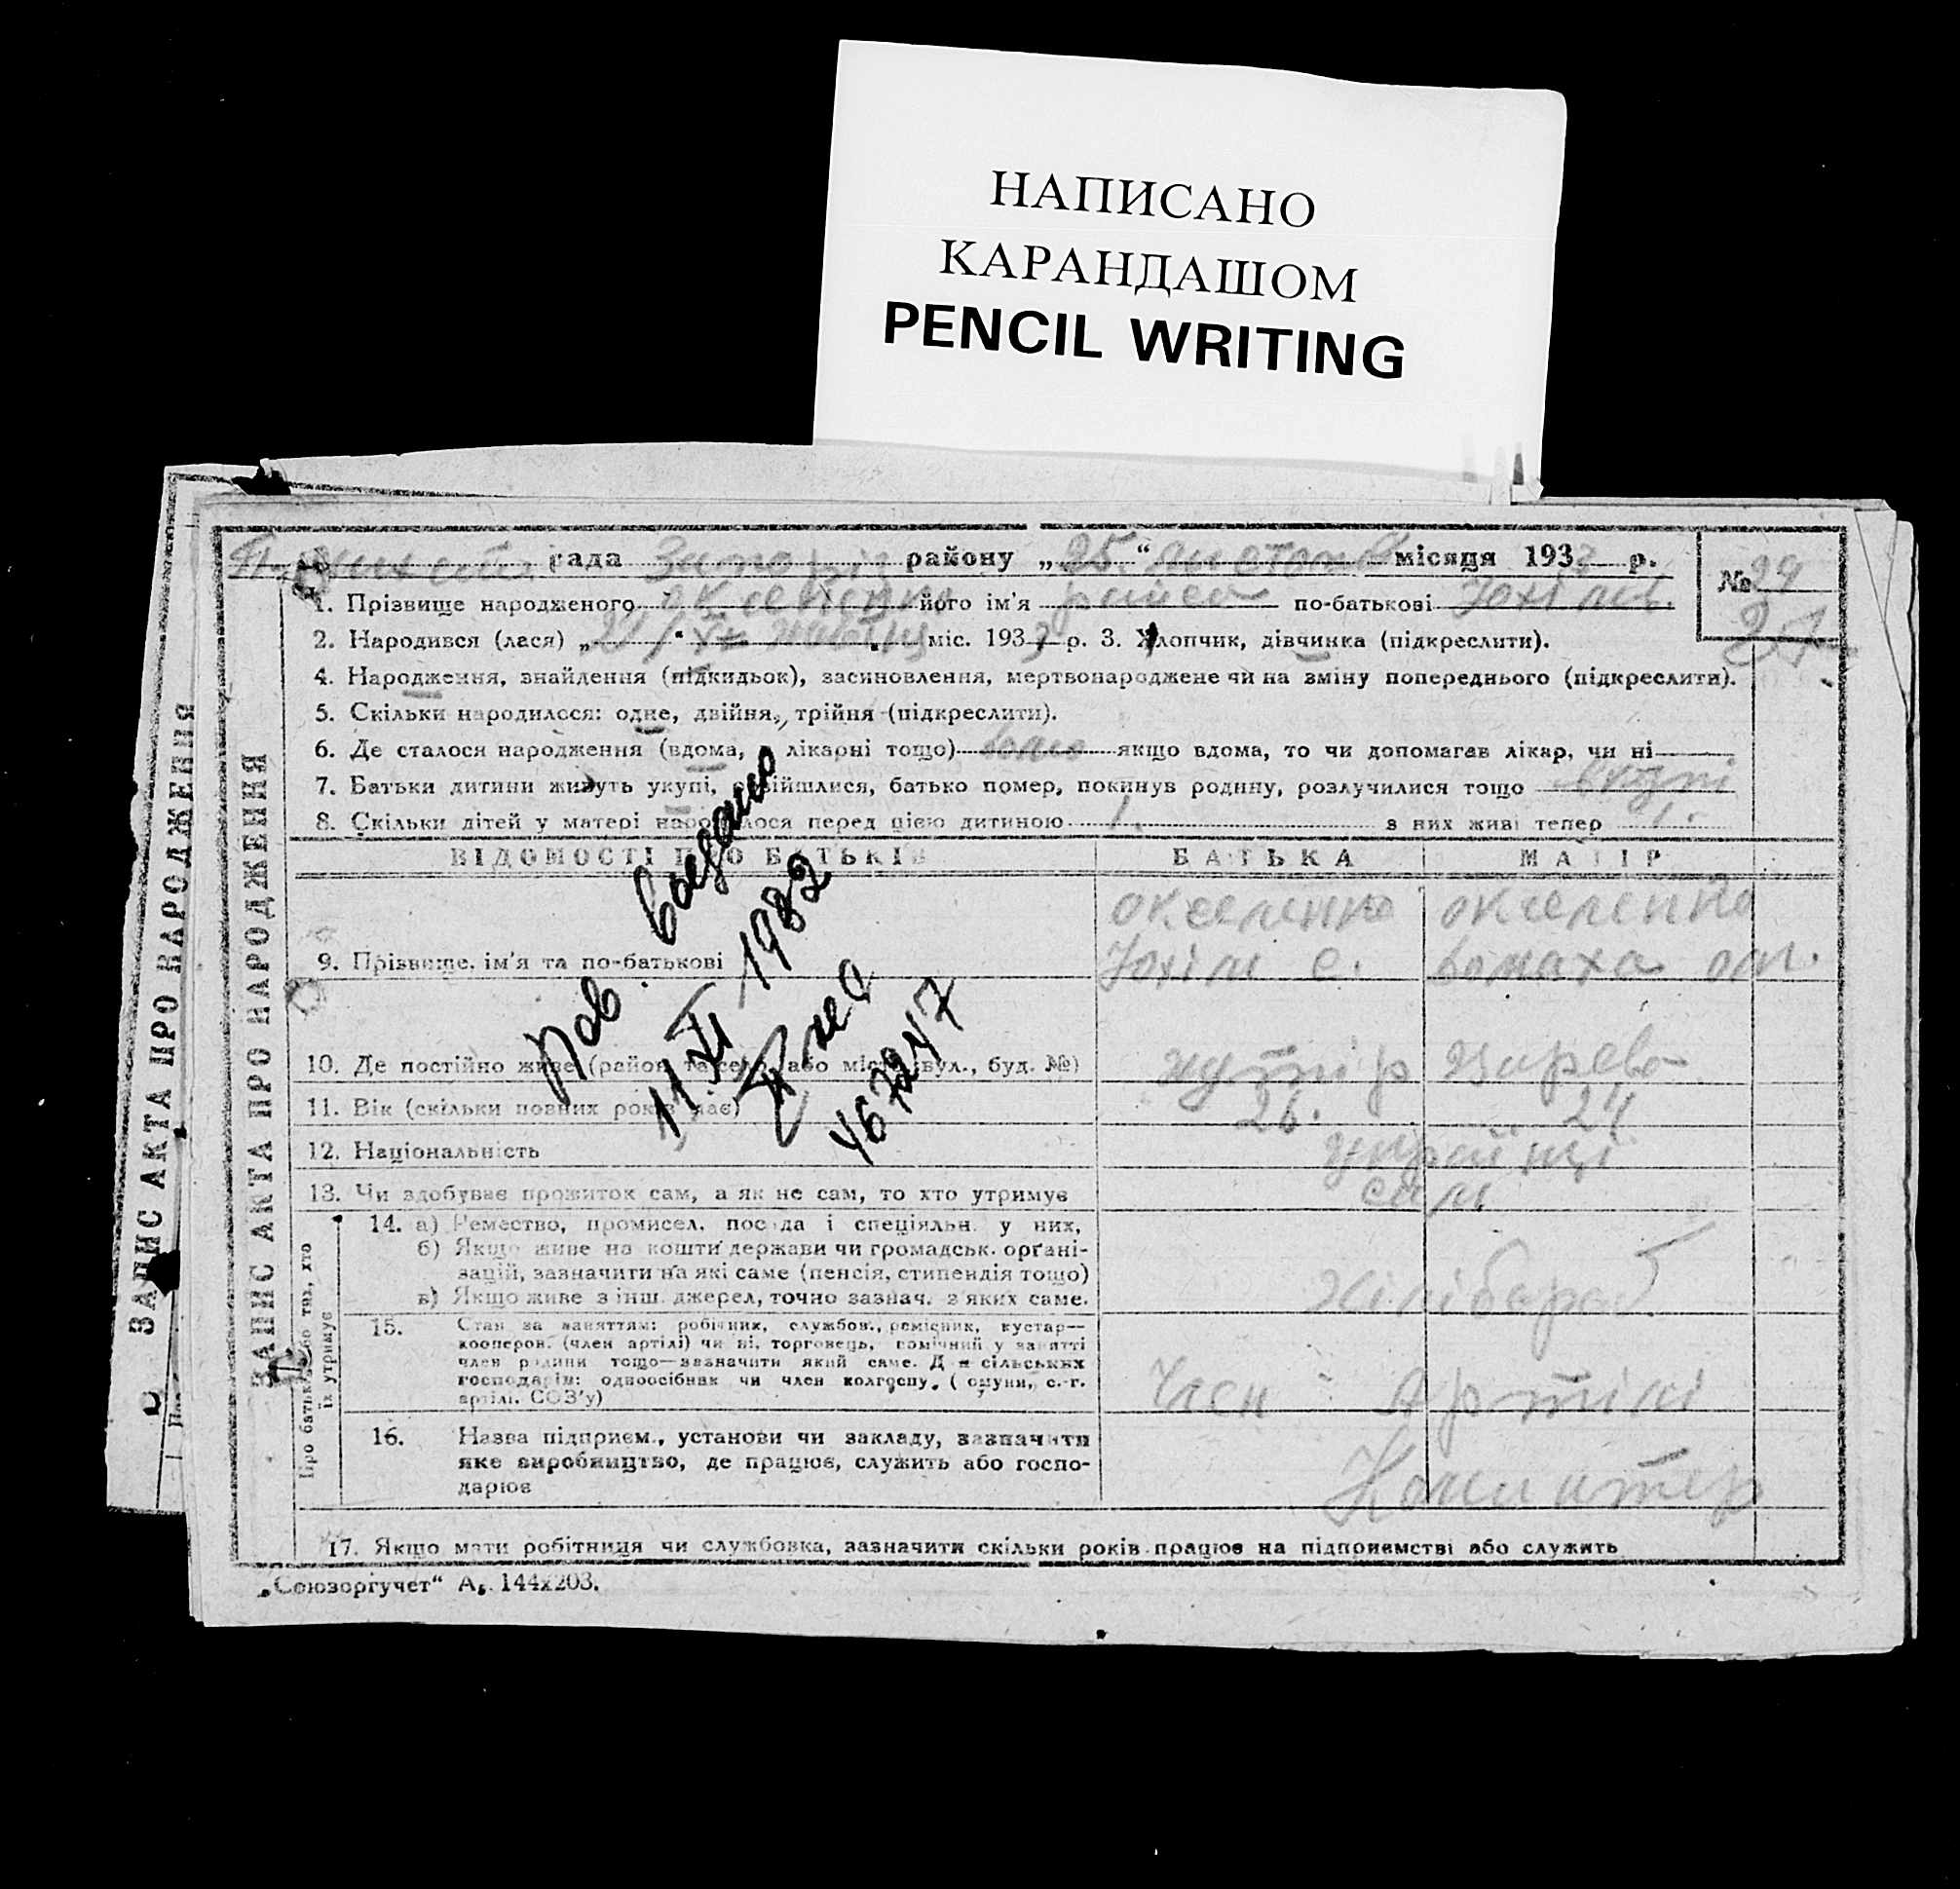 НАПИСАНО
КАРАНДАШОМ
PENCIL WRITING
рада Запоріз району „25“ листопа місяця 1933 р.
№ 29
27
1. Прізвище народженого його ім'я раиса по-батькові Юхімов.
2. Народився (лася) „21/ міс. 1933 р. 3. Хлопчик, дівчинка (підкреслити).
4. Народження, знайдення (підкидьок), засиновлення, мертвонароджене чи на зміну попереднього (підкреслити).
5. Скільки народилося: одне, двійня, трійня (підкреслити).
6. Де сталося народження (вдома, лікарні тощо) якщо вдома, то чи допомагав лікар, чи ні
7. Батьки дитини живуть укупі, розійшлися, батько помер, покинув родину, розлучилися тощо вкупі
8. Скільки дітей у матері народилося перед цією дитиною 1. з них живі тепер 1.
ВІДОМОСТІ ПРО БАТЬКІВ БАТЬКА МАТІР
9. Прізвище, ім'я та по-батькові
Юхім с. домаха ом.
10. Де постійно живе (район та село або місто, вул., буд. №) хутір
11. Вік (скільки повних років має) 26. 24
12. Національність українці
13. Чи здобуває прожиток сам, а як не сам, то хто утримує сам
Про батька або тих, хто їх утримує
14. а) Ремество, промисел, посада і спеціяльн. у них,
б) Якщо живе на кошти держави чи громадськ. орґані-
зацій, зазначити на які саме (пенсія, стипендія тощо)
в) Якщо живе з інш. джерел, точно зазнач. з яких саме.
хлібороб
15. Стан за заняттям: робітник, службов., ремісник, кустар—
кооперов. (член артілі) чи ні, торговець, помічний у занятті
член родини тощо—зазначити який саме. Для сільських
господарів: одноосібник чи член колгоспу, (комуни, с.-г.
артілі, СОЗ'у)
Член Артілі
16. Назва підприєм., установи чи закладу, зазначити
яке виробництво, де працює, служить або госпо-
дарює
Комінтер
17. Якщо мати робітниця чи службовка, зазначити скільки років працює на підприємстві або служить
„Союзоргучет“ А. 144х203.
ЗАПИС АКТА ПРО НАРОДЖЕННЯ
ЗАПИС АКТА ПРО НАРОДЖЕННЯ
Пов. выдано
11 XI 1982
467247